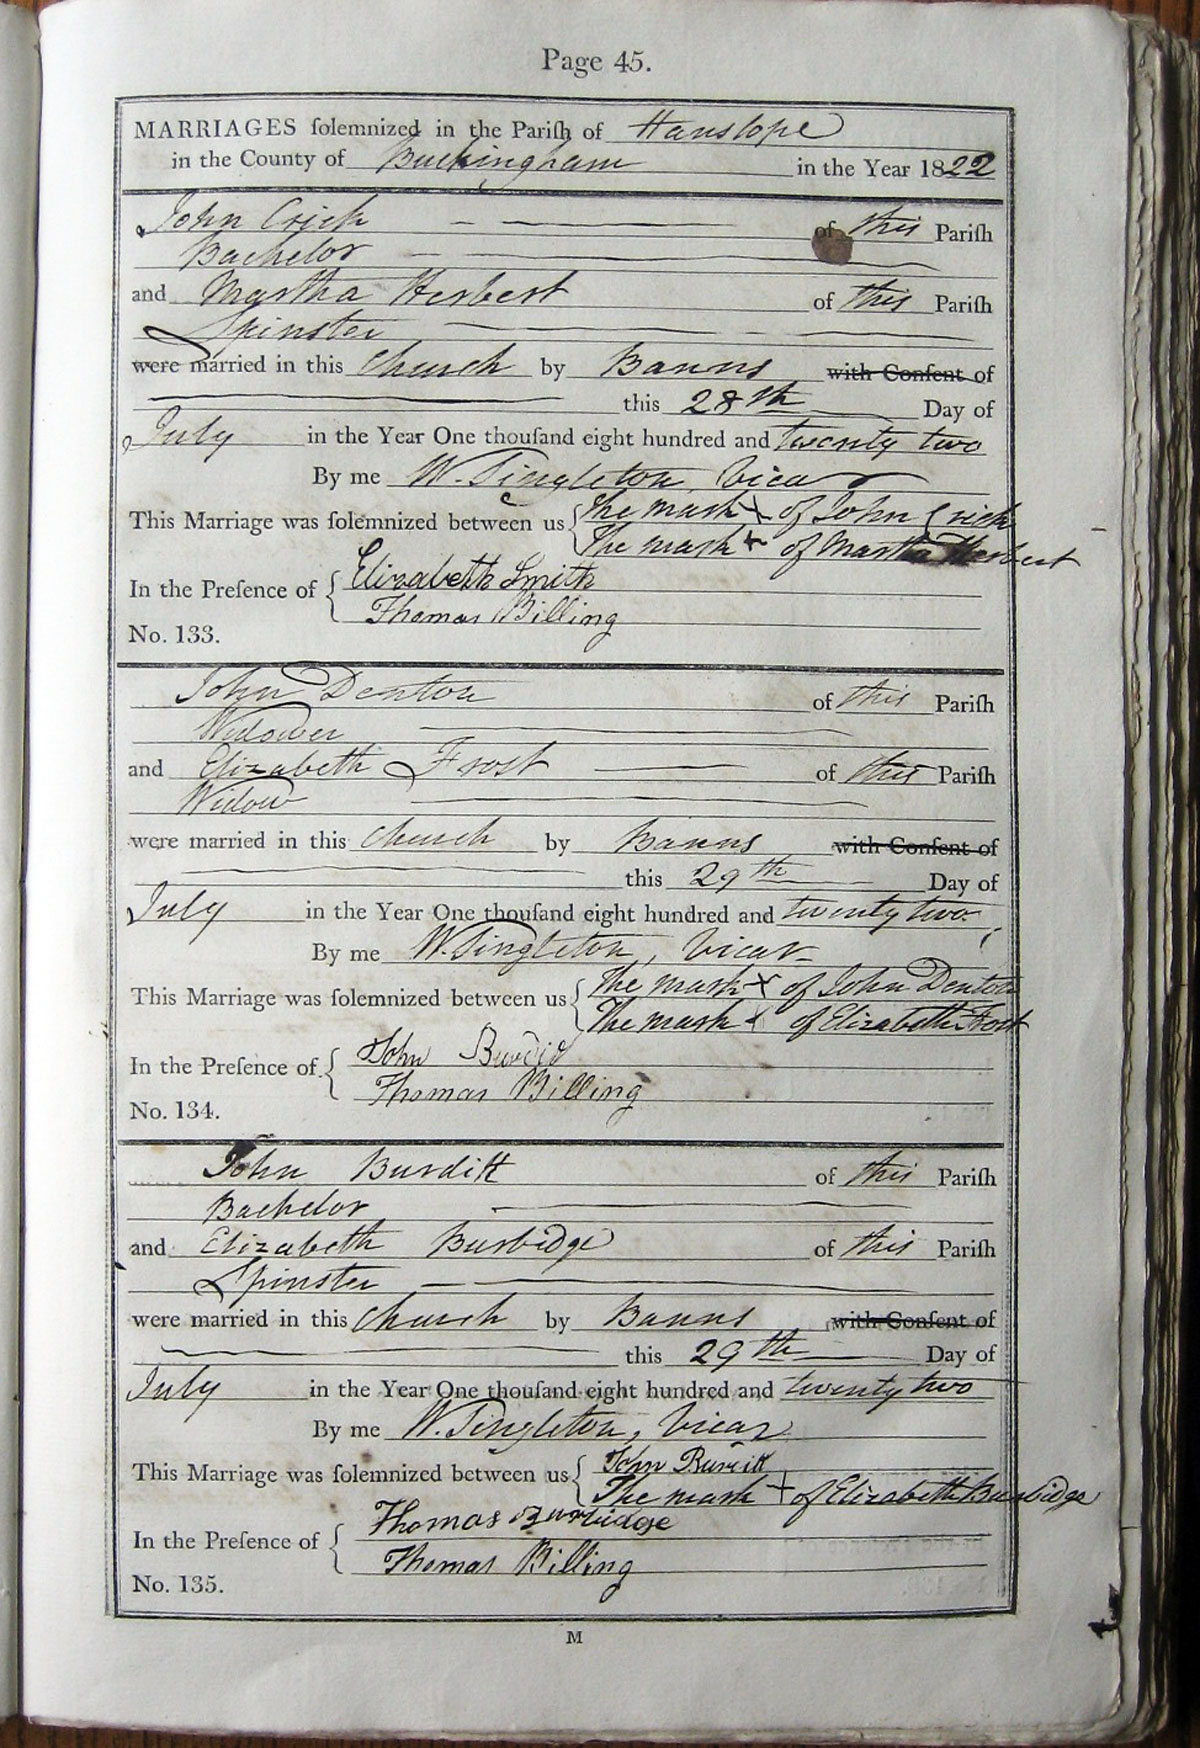 Page 45.
MARRIAGES ſolemnized in the Pariſh of Hanslope
in the County of Buckingham in the Year 1822
John Crick of this Pariſh
Bachelor
and Martha Herbert of this Pariſh
Spinster
were married in this Church by Banns with Conſent of
this 28th Day of
July in the Year One thouſand eight hundred and twenty two
By me W. Singleton, Vicar
This Marriage was ſolemnized between us { The mark X of John Crick
The mark + of Martha Herbert
In the Preſence of { Elizabeth Smith
Thomas Billing
No. 133.
John Denton of this Pariſh
Widower
and Elizabeth Frost of this Pariſh
Widow
were married in this Church by Banns with Conſent of
this 29th Day of
July in the Year One thouſand eight hundred and twenty two
By me W. Singleton, Vicar
This Marriage was ſolemnized between us { The mark X of John Denton
The mark X of Elizabeth Frost
In the Preſence of { John
Thomas Billing
No. 134.
John Burditt of this Pariſh
Bachelor
and Elizabeth Burbidge of this Pariſh
Spinster
were married in this Church by Banns with Conſent of
this 29th Day of
July in the Year One thouſand eight hundred and twenty two
By me W. Singleton, Vicar
This Marriage was ſolemnized between us { John
The mark + of Elizabeth Burbidge
In the Preſence of { Thomas Burbidge
Thomas Billing
No. 135.
M